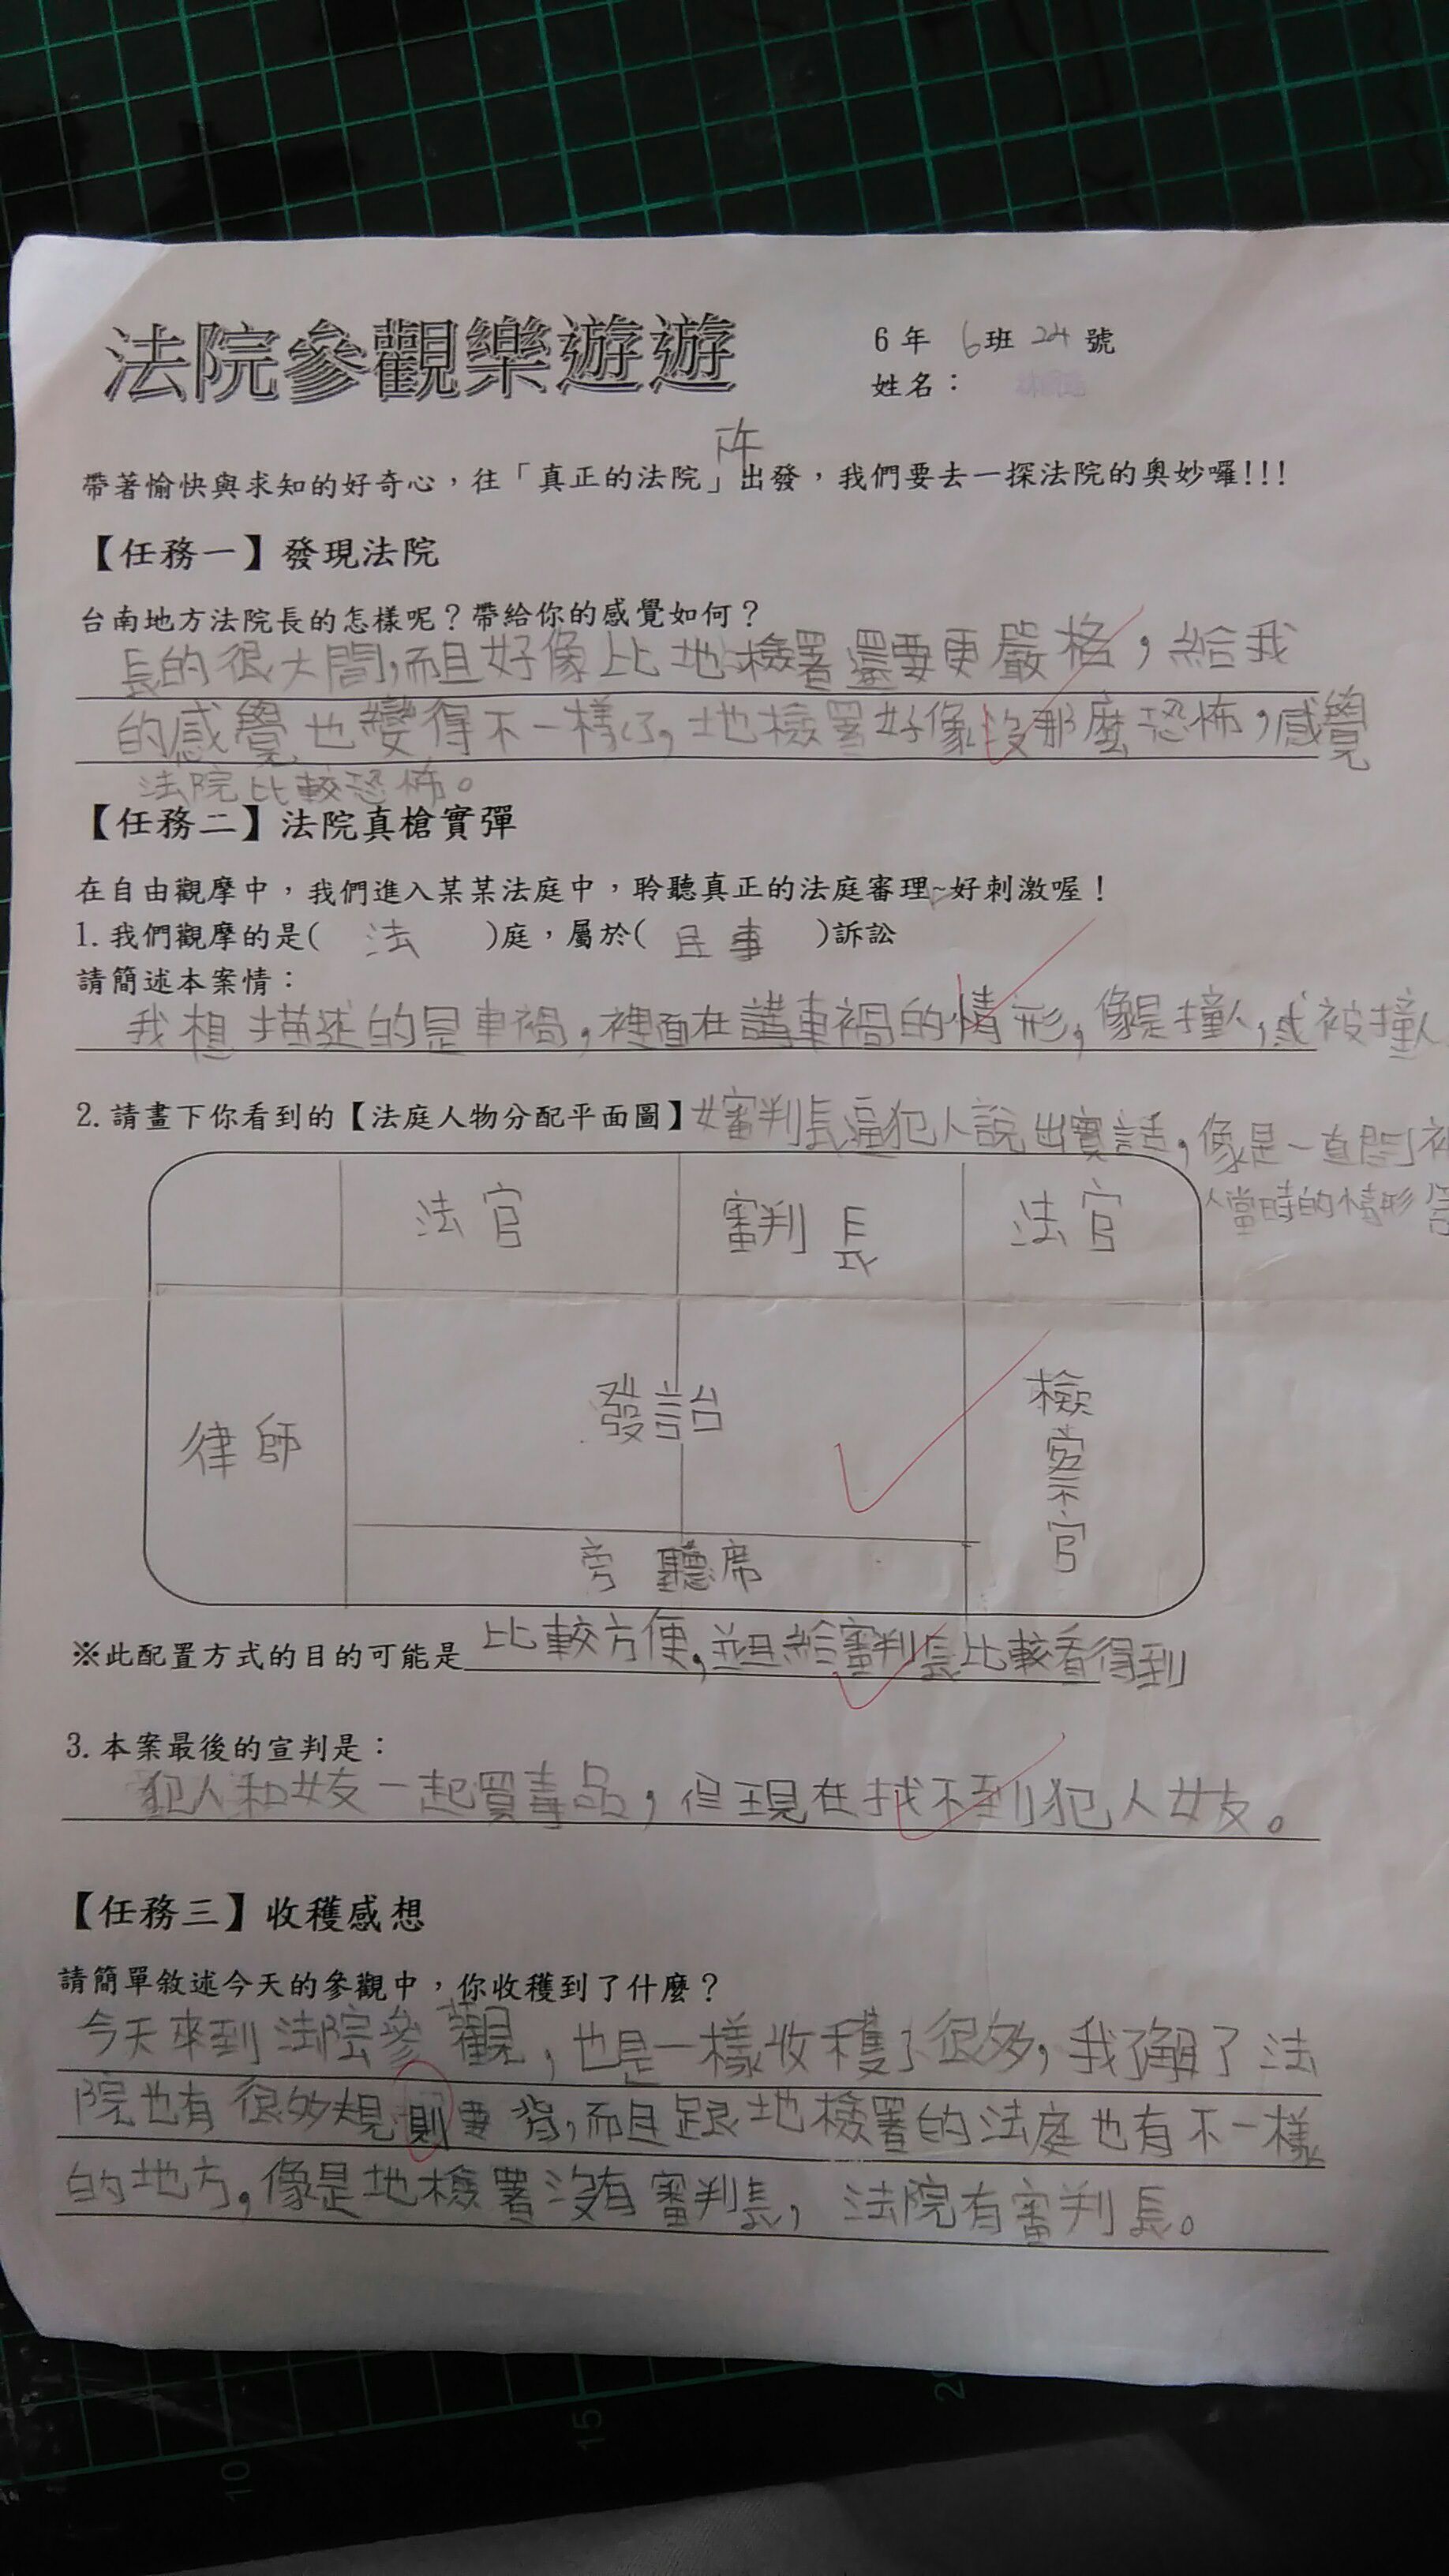 法院參觀樂遊遊
6年 6班 24 號
姓名：
許
帶著愉快與求知的好奇心，往「真正的法院」出發，我們要去一探法院的奧妙囉!!!
【任務一】發現法院
台南地方法院長的怎樣呢？帶給你的感覺如何？
長的很大間，而且好像比地檢署還要更嚴格，給我
的感覺也變得不一樣了，地檢署好像沒那麼恐怖，感覺
法院比較恐怖。
【任務二】法院真槍實彈
在自由觀摩中，我們進入某某法庭中，聆聽真正的法庭審理~好刺激喔！
1.我們觀摩的是( 法 )庭，屬於( 民事 )訴訟
請簡述本案情：
我想描述的是車禍，裡面在講車禍的情形，像是撞人，或被撞
2.請畫下你看到的【法庭人物分配平面圖】
女審判長逼犯人說出實話，像是一直問
人當時的情形
法官 審判長 法官
律師
發言台
檢察官
旁聽席
※此配置方式的目的可能是比較方便，並且給審判長比較看得到
3.本案最後的宣判是：
犯人和女友一起買毒品，但現在找不到犯人女友。
【任務三】收穫感想
請簡單敘述今天的參觀中，你收穫到了什麼？
今天來到法院參觀，也是一樣收穫了很多，我了解了法
院也有很多規則要背，而且跟地檢署的法庭也有不一樣
的地方。像是地檢署沒有審判長，法院有審判長。
10
15